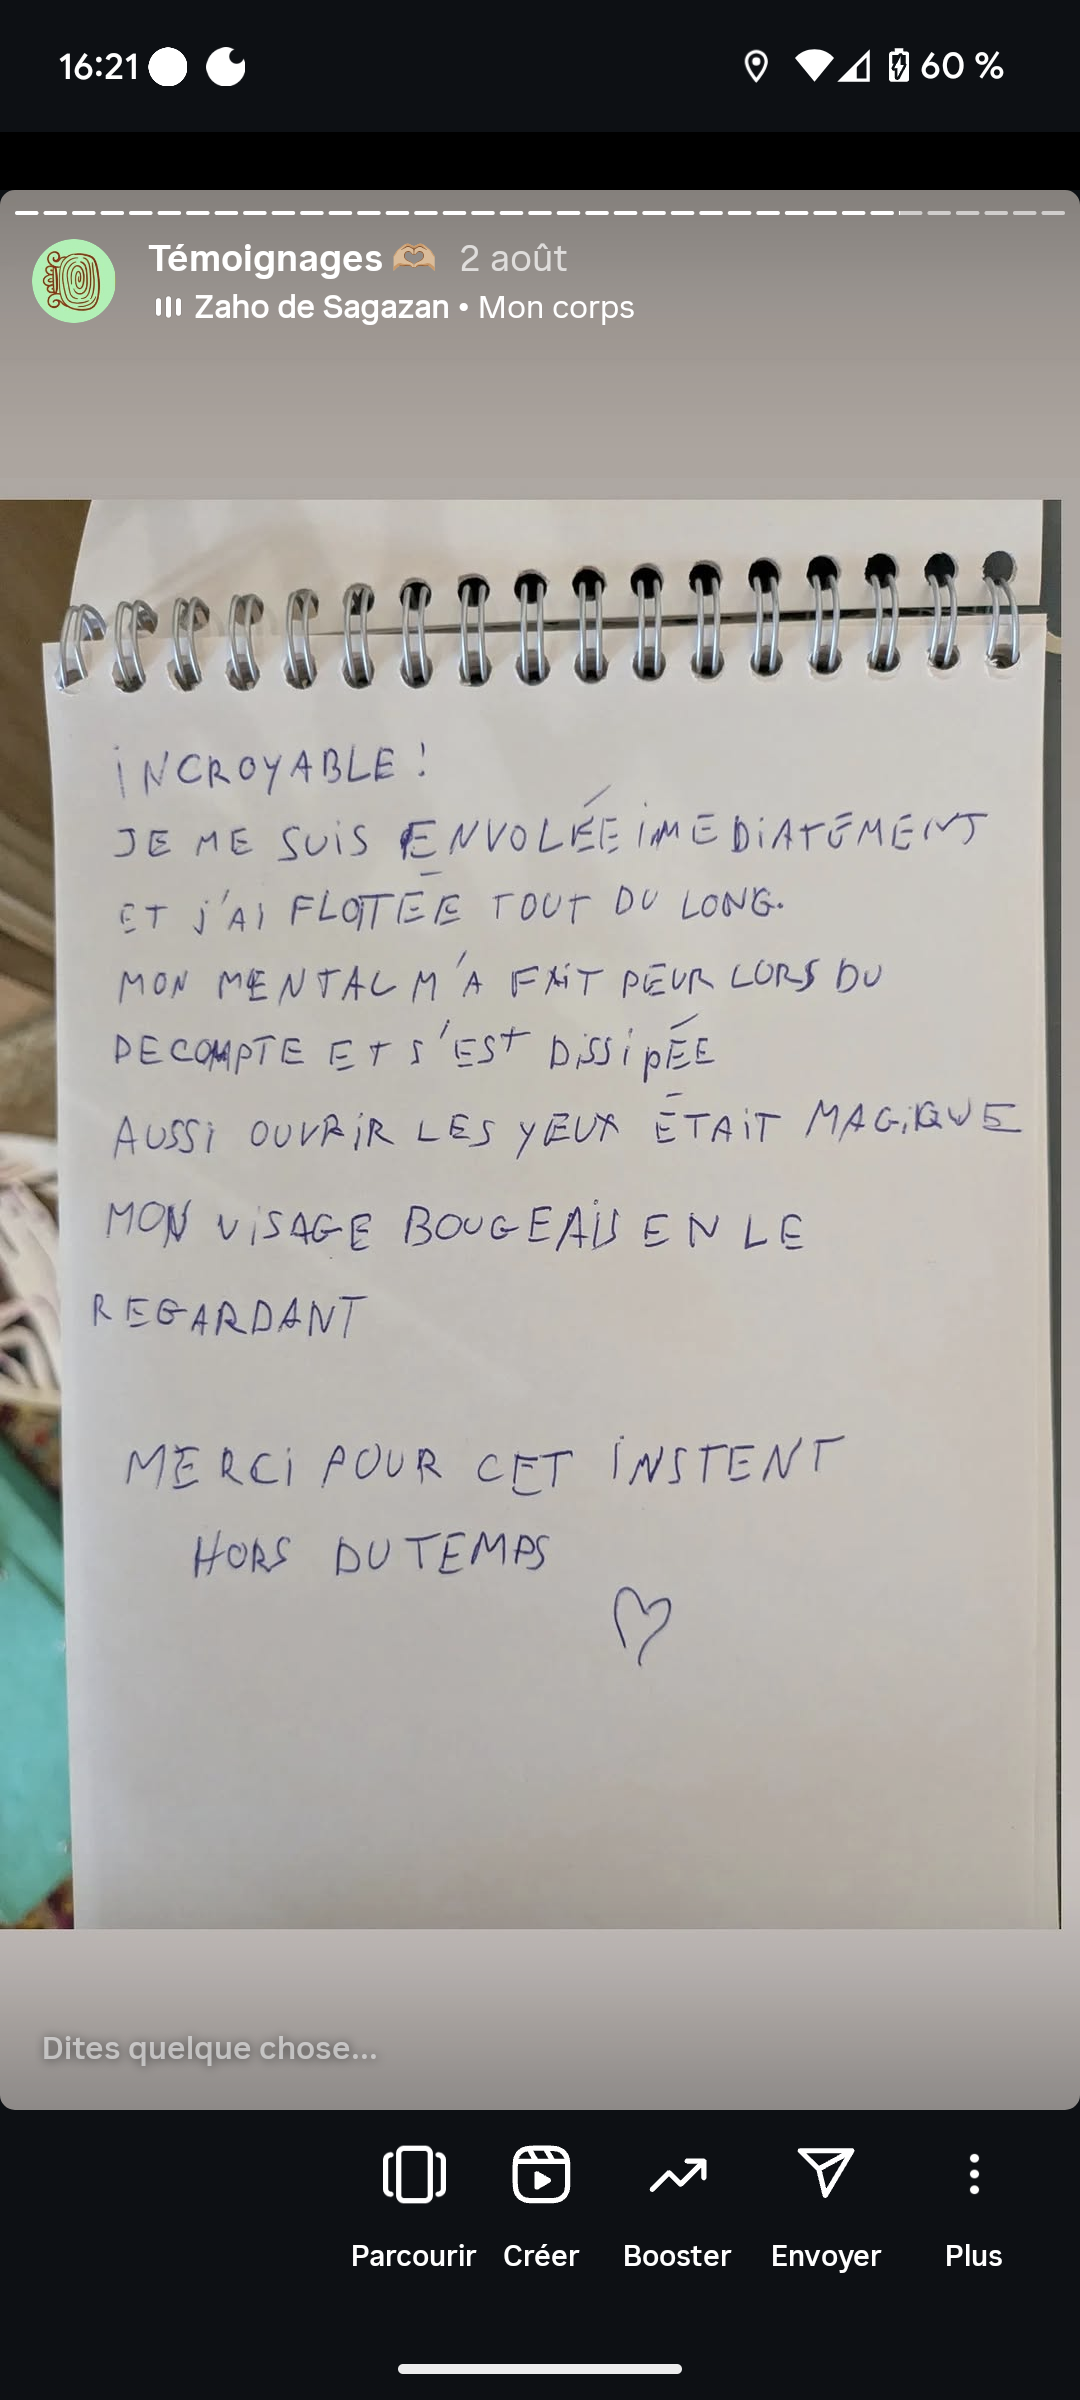 16:21
60 %
Témoignages 🫶🏼 2 août
Zaho de Sagazan • Mon corps
INCROYABLE !
JE ME SUIS ENVOLÉE IMEDIATEMENT
ET J'AI FLOTÉE TOUT DU LONG.
MON MENTAL M'A FAIT PEUR LORS DU
DECOMPTE ET S'EST DISSIPÉE
AUSSI OUVRIR LES YEUX ÉTAIT MAGIQUE
MON VISAGE BOUGEAIS EN LE
REGARDANT
MERCI POUR CET INSTENT
HORS DU TEMPS
Dites quelque chose...
Parcourir Créer Booster Envoyer Plus